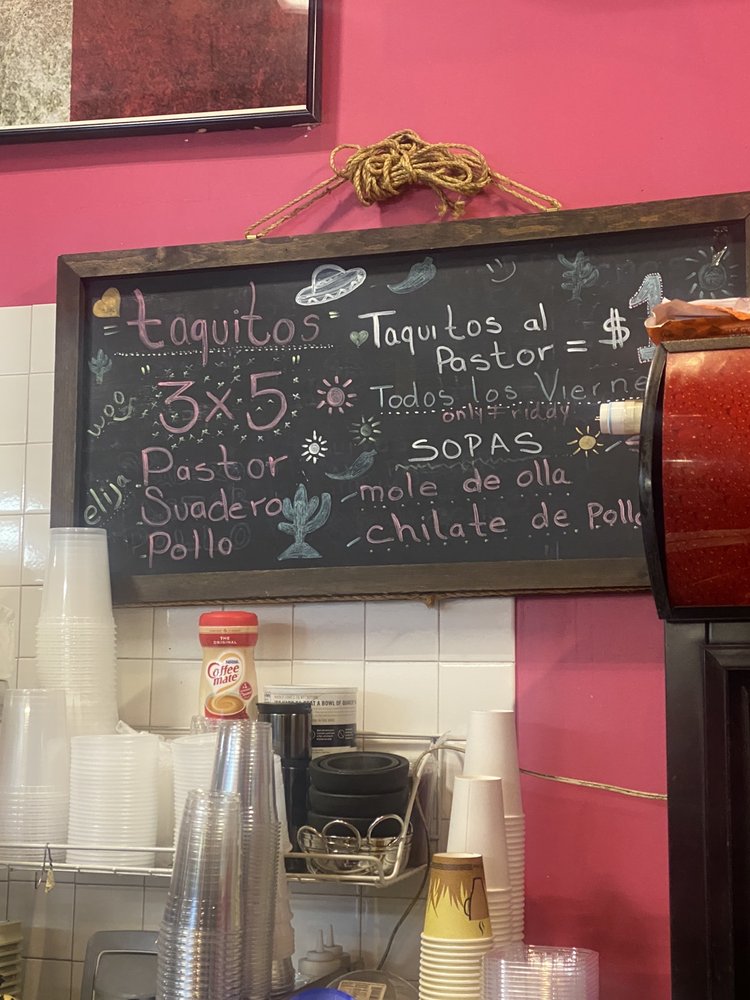 taquitos
3x5
Pastor
Suadero
Pollo
woo
elija
Taquitos al
Pastor = $1
Todos los Vierne
only Friday
SOPAS
-mole de olla
-chilate de Pollo
THE ORIGINAL
Nestlé
Coffee
mate
A BOWL OF